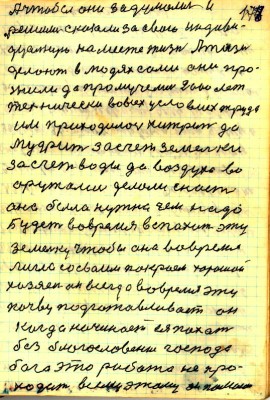 177
А чтобы они задумали и
решили сказали за свою индиви-
дуальную на месте жизнь
делают в людях сами они про-
жили да промучили лет
технически во всех условиях труда
им приходилось хитрить да
мудрить за счет земельки
за счет воды да воздуха во
оружали делали снасть
она была нужна чем надо
будет вовремя вспахать эту
земельку чтобы она вовремя
лигла со своим покроем хороший
хозяен он всегда вовремя эту
почву подготавливает он
когда начинает ея пахат
без благословение господа
бога это работа не про-
ходит всему этому он